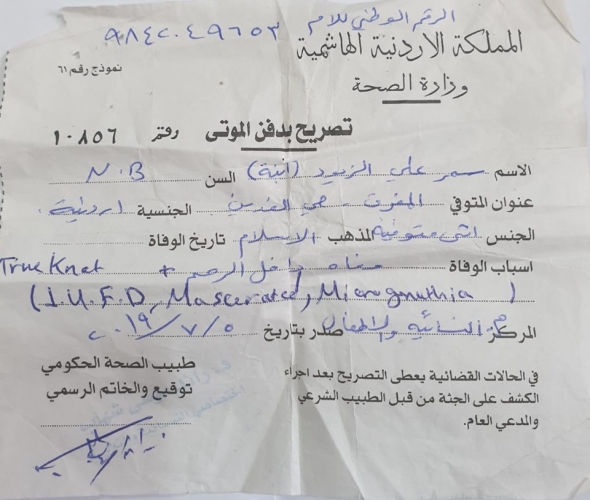 الرقم الوطني للام
٩٨٤٢٠٤٩٦٥٣
المملكة الاردنية الهاشمية
وزارة الصحة
نموذج رقم ٦١
تصريح بدفن الموتى رقم ١٠٨٥٦
الاسم سمر علي الزيود (ابنة) السن N.B
عنوان المتوفي المفرق - حي الجنسية اردنية
الجنس انثى متوفية المذهب الاسلام تاريخ الوفاة
اسباب الوفاة داخل الرحم + True Knot
(I.U.F.D, Mascerated, Micrognathia)
المركز النسائية والاطفال صدر بتاريخ ٢٠١٩/٧/٥
في الحالات القضائية يعطى التصريح بعد اجراء
الكشف على الجثة من قبل الطبيب الشرعي
والمدعي العام.
طبيب الصحة الحكومي
توقيع والخاتم الرسمي